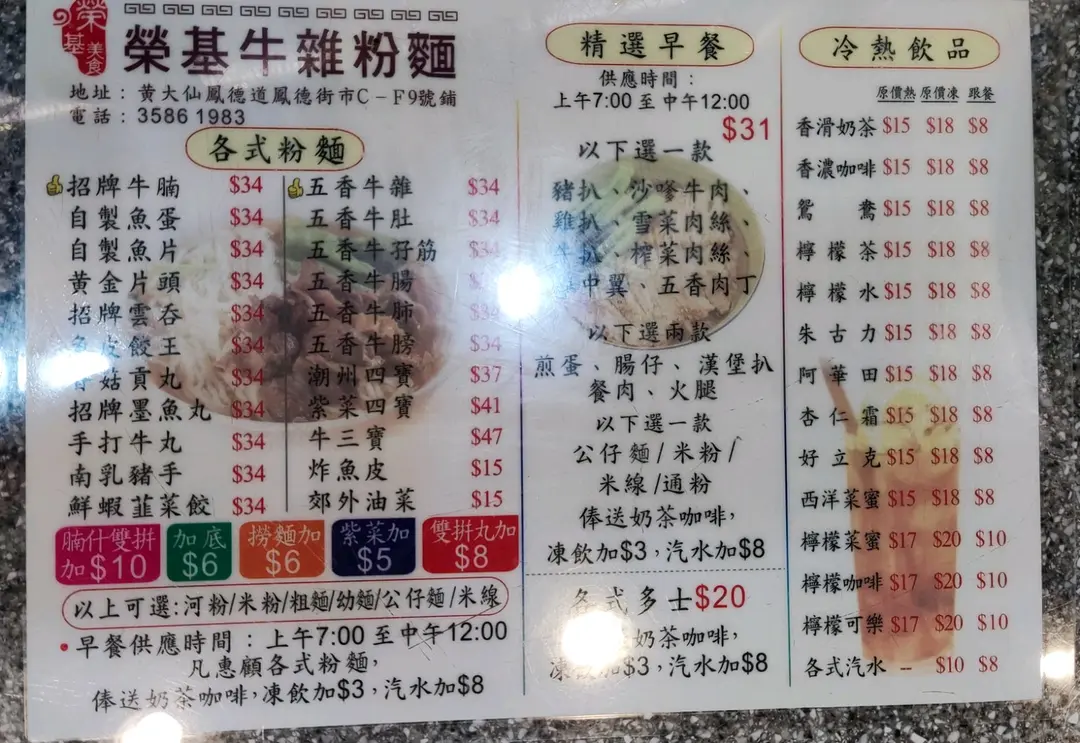 榮基美食
榮基牛雜粉麵
地址：黄大仙鳳德道鳳德街市C－F9號鋪
電話：3586 1983
各式粉麵
招牌牛腩 $34
自製魚蛋 $34
自製魚片 $34
黄金片頭 $34
招牌雲吞 $34
皮餃王 $34
菇貢丸 $34
招牌墨魚丸 $34
手打牛丸 $34
南乳豬手 $34
鮮蝦韮菜餃 $34
五香牛雜 $34
五香牛肚 $34
五香牛孖筋 $34
五香牛腸
五香牛肺 $34
五香牛膀 $34
潮州四寶 $37
紫菜四寶 $41
牛三寶 $47
炸魚皮 $15
郊外油菜 $15
腩什雙拼加$10
加底$6
撈麵加$6
紫菜加$5
雙拼丸加$8
以上可選:河粉/米粉/粗麵/幼麵/公仔麵/米線
•早餐供應時間：上午7:00 至中午12:00
凡惠顧各式粉麵，
俸送奶茶咖啡，凍飲加$3，汽水加$8
精選早餐
供應時間：
上午7:00 至中午12:00
$31
以下選一款
豬扒、沙嗲牛肉、
雞扒、雪菜肉絲、
牛扒、榨菜肉絲、
中翼、五香肉丁
以下選兩款
煎蛋、腸仔、漢堡扒
餐肉、火腿
以下選一款
公仔麵/米粉/
米線/通粉
俸送奶茶咖啡，
凍飲加$3，汽水加$8
各式多士$20
奶茶咖啡，
凍飲加$3，汽水加$8
冷熱飲品
原價熱 原價凍 跟餐
香滑奶茶 $15 $18 $8
香濃咖啡 $15 $18 $8
鴛鴦 $15 $18 $8
檸檬茶 $15 $18 $8
檸檬水 $15 $18 $8
朱古力 $15 $18 $8
阿華田 $15 $18 $8
杏仁霜 $15 $18 $8
好立克 $15 $18 $8
西洋菜蜜 $15 $18 $8
檸檬菜蜜 $17 $20 $10
檸檬咖啡 $17 $20 $10
檸檬可樂 $17 $20 $10
各式汽水 – $10 $8